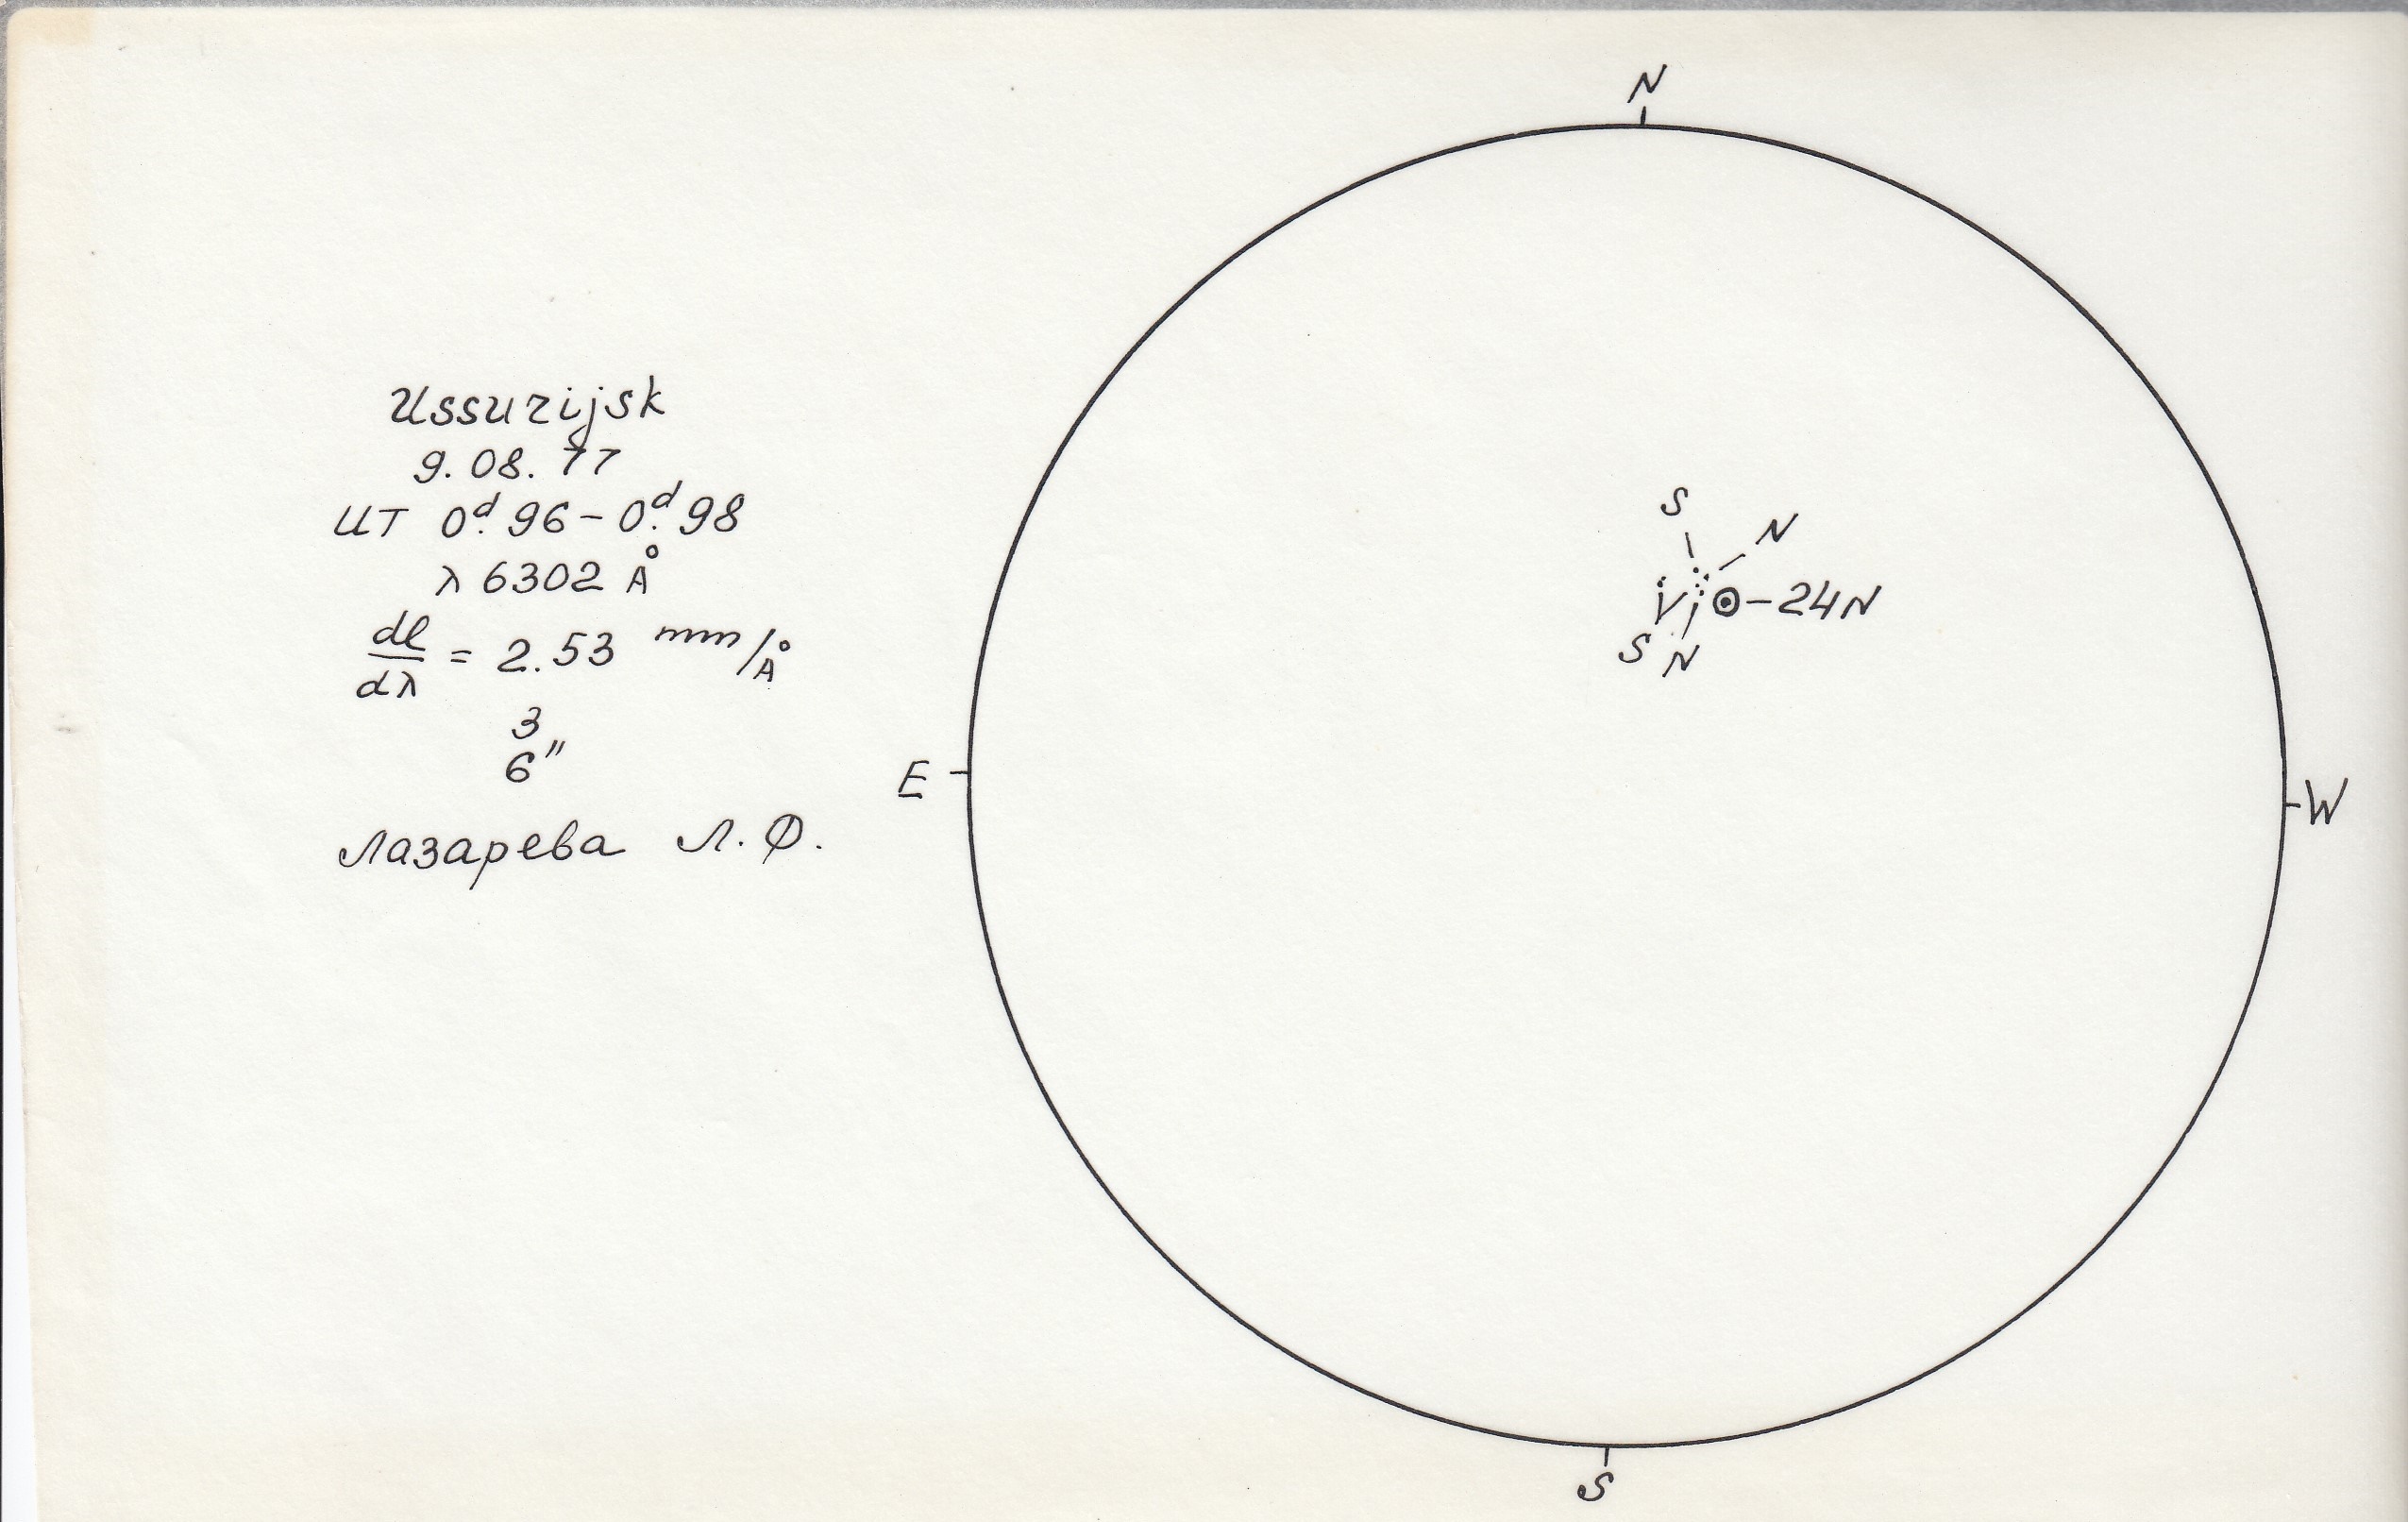 Ussurijsk
9.08.77
UT 0ᵈ.96-0ᵈ.98
λ 6302 Å
dl/dλ = 2.53 mm/Å
3
6"
Лазарева Л.Ф.
N
S
N
-24N
V
S N
E
W
S